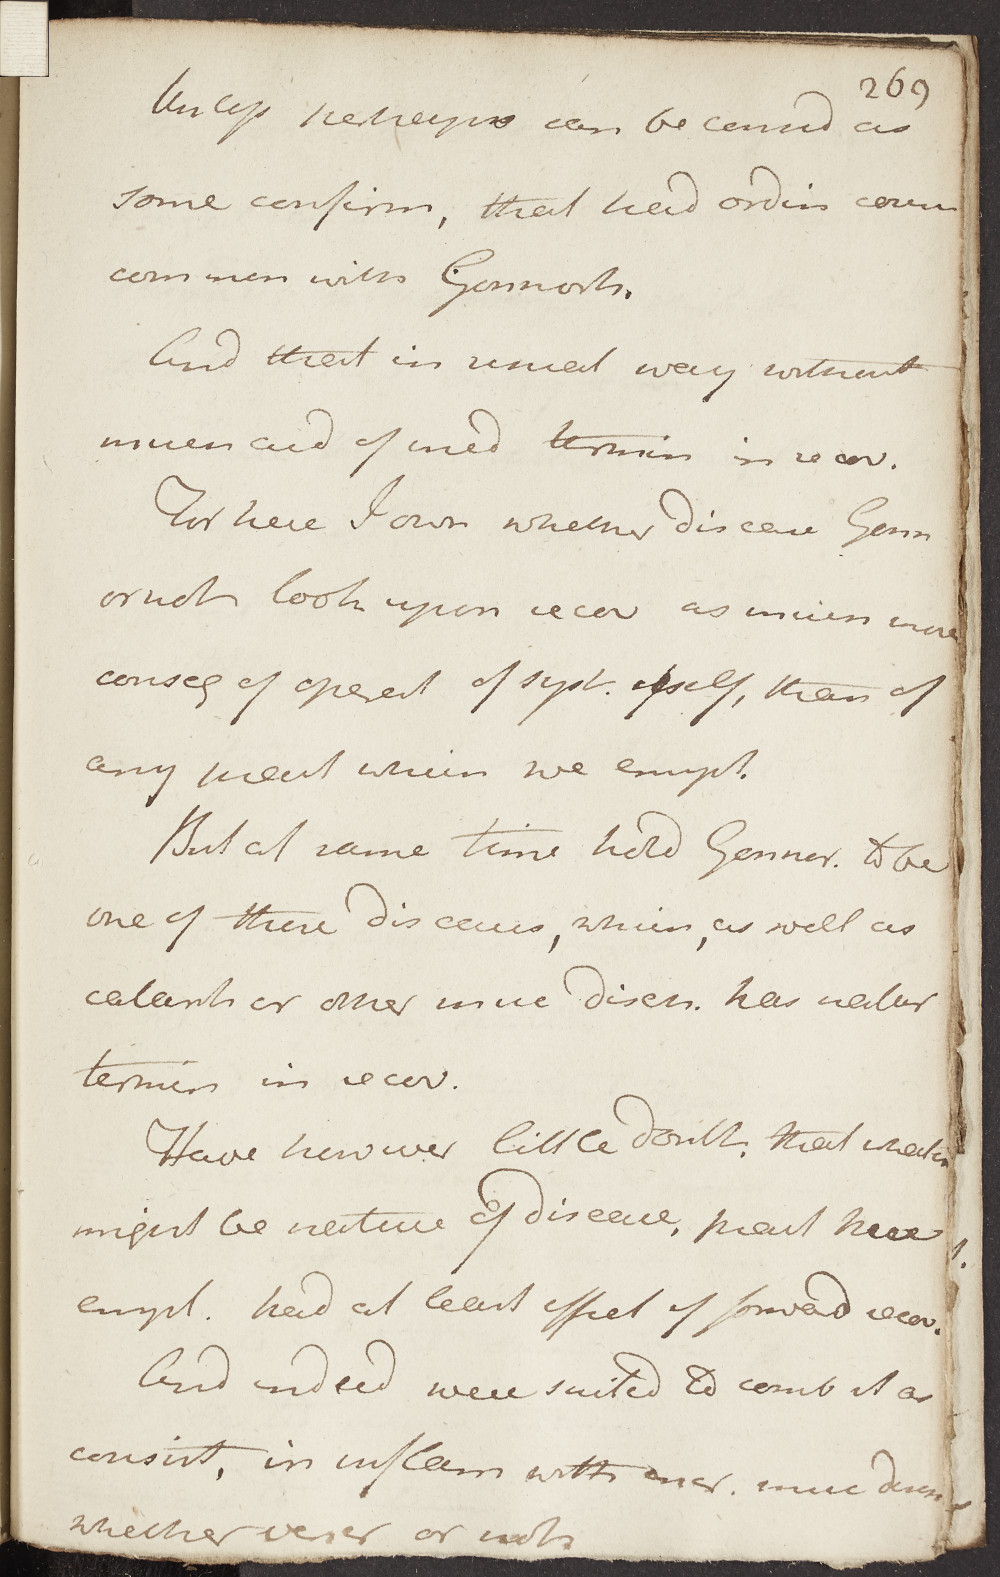 269
Unless perhaps can be consid as
some confirm, that had ordin cours
common with Gonnorh.
And that in usual way without
much aid of med termin in recov.
For here I own whether disease Gonn
or not look upon recov as much more
conseq of operat of syst. itself, than of
any pract which we empl.
But at same time hold Gonnor. to be
one of those diseases, which, as well as
catarrh or other muc disch. has natur
termin in recov.
Have however little doubt, that what
might be nature of disease, pract here
empl. had at least effect of forward recov.
And indeed were suited to comb it as
consist, in inflam with incr. muc disch
whether vener or not